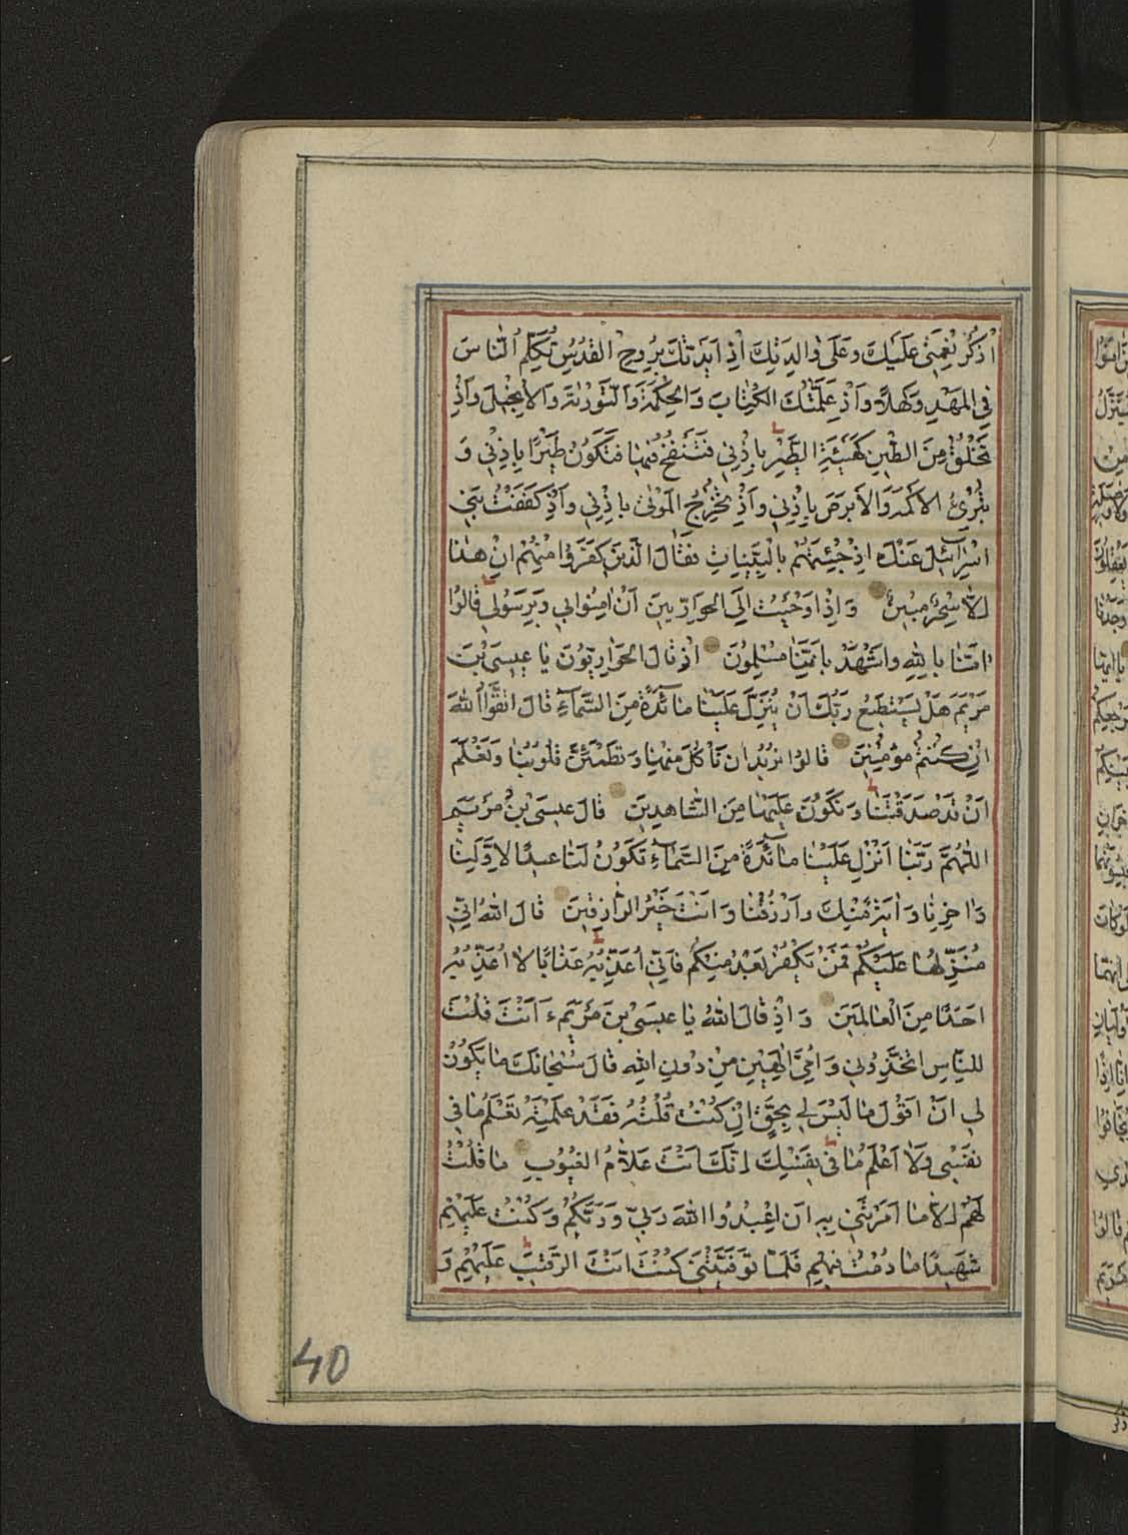 اذْكُرْ نِعْمَتِي عَلَيْكَ وَعَلَى وَالِدَتِكَ اِذْ اَيَّدْتُكَ بِرُوحِ الْقُدُسِ تُكَلِّمُ النَّاسَ
فِي الْمَهْدِ وَكَهْلًا وَاِذْ عَلَّمْتُكَ الْكِتَابَ وَالْحِكْمَةَ وَالتَّوْرٰيةَ وَالْاِنْجِيلَ وَاِذْ
تَخْلُقُ مِنَ الطِّينِ كَهَيْئَةِ الطَّيْرِ بِاِذْنِي فَتَنْفُخُ فِيهَا فَتَكُونُ طَيْرًا بِاِذْنِي وَ
تُبْرِئُ الْاَكْمَهَ وَالْاَبْرَصَ بِاِذْنِي وَاِذْ تُخْرِجُ الْمَوْتٰى بِاِذْنِي وَاِذْ كَفَفْتُ بَنِي
اِسْرَآئِيلَ عَنْكَ اِذْ جِئْتَهُمْ بِالْبَيِّنَاتِ فَقَالَ الَّذِينَ كَفَرُوا مِنْهُمْ اِنْ هٰذَا
اِلَّا سِحْرٌ مُبِينٌ وَاِذْ اَوْحَيْتُ اِلَى الْحَوَارِيِّينَ اَنْ اٰمِنُوا بِي وَبِرَسُولِي قَالُوا
اٰمَنَّا بِاللّٰهِ وَاشْهَدْ بِاَنَّنَا مُسْلِمُونَ اِذْ قَالَ الْحَوَارِيُّونَ يَا عِيسَى بْنَ
مَرْيَمَ هَلْ يَسْتَطِيعُ رَبُّكَ اَنْ يُنَزِّلَ عَلَيْنَا مَآئِدَةً مِنَ السَّمَآءِ قَالَ اتَّقُوا اللّٰهَ
اِنْ كُنْتُمْ مُؤْمِنِينَ قَالُوا نُرِيدُ اَنْ نَأْكُلَ مِنْهَا وَتَطْمَئِنَّ قُلُوبُنَا وَنَعْلَمَ
اَنْ قَدْ صَدَقْتَنَا وَنَكُونَ عَلَيْهَا مِنَ الشَّاهِدِينَ قَالَ عِيسَى بْنُ مَرْيَمَ
اللّٰهُمَّ رَبَّنَا اَنْزِلْ عَلَيْنَا مَآئِدَةً مِنَ السَّمَآءِ تَكُونُ لَنَا عِيدًا لِاَوَّلِنَا
وَاٰخِرِنَا وَاٰيَةً مِنْكَ وَارْزُقْنَا وَاَنْتَ خَيْرُ الرَّازِقِينَ قَالَ اللّٰهُ اِنِّي
مُنَزِّلُهَا عَلَيْكُمْ فَمَنْ يَكْفُرْ بَعْدُ مِنْكُمْ فَاِنِّي اُعَذِّبُهُ عَذَابًا لَا اُعَذِّبُهُ
اَحَدًا مِنَ الْعَالَمِينَ وَاِذْ قَالَ اللّٰهُ يَا عِيسَى بْنَ مَرْيَمَ ءَاَنْتَ قُلْتَ
لِلنَّاسِ اتَّخِذُونِي وَاُمِّيَ اِلٰهَيْنِ مِنْ دُونِ اللّٰهِ قَالَ سُبْحَانَكَ مَا يَكُونُ
لِي اَنْ اَقُولَ مَا لَيْسَ لِي بِحَقٍّ اِنْ كُنْتُ قُلْتُهُ فَقَدْ عَلِمْتَهُ تَعْلَمُ مَا فِي
نَفْسِي وَلَا اَعْلَمُ مَا فِي نَفْسِكَ اِنَّكَ اَنْتَ عَلَّامُ الْغُيُوبِ مَا قُلْتُ
لَهُمْ اِلَّا مَا اَمَرْتَنِي بِهِ اَنِ اعْبُدُوا اللّٰهَ رَبِّي وَرَبَّكُمْ وَكُنْتُ عَلَيْهِمْ
شَهِيدًا مَا دُمْتُ فِيهِمْ فَلَمَّا تَوَفَّيْتَنِي كُنْتَ اَنْتَ الرَّقِيبَ عَلَيْهِمْ وَ
40